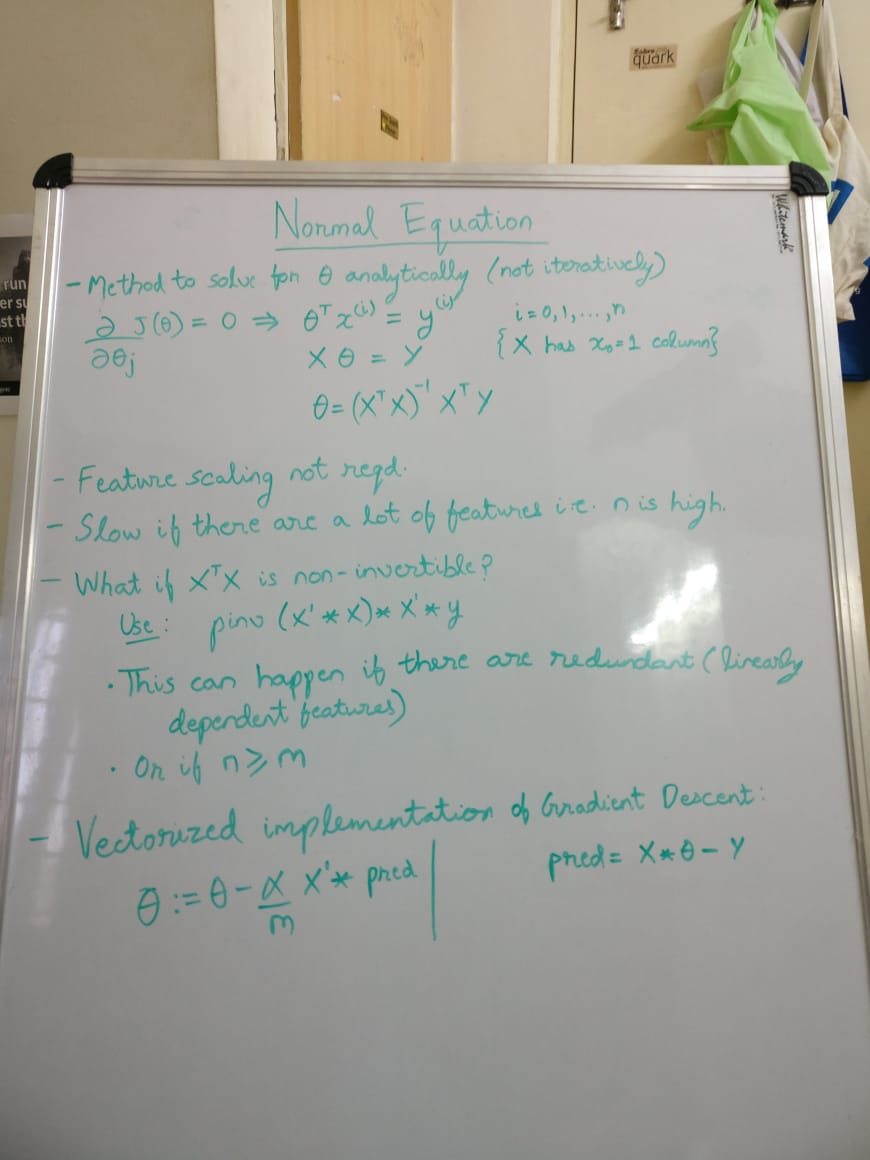 quark
Whitemark
run
er su
st th
son
Normal Equation
- Method to solve for θ analytically (not iteratively)
∂/∂θj J(θ) = 0 ⇒ θᵀx⁽ⁱ⁾ = y⁽ⁱ⁾ i = 0,1,...,n
Xθ = Y {X has x₀=1 column}
θ = (XᵀX)⁻¹ XᵀY
- Feature scaling not reqd.
- Slow if there are a lot of features i.e. n is high.
- What if XᵀX is non-invertible?
Use: pinv (X' * X) * X' * y
· This can happen if there are redundant (linearly
dependent features)
· Or if n ⩾ m
- Vectorized implementation of Gradient Descent:
θ := θ - α/m X' * pred | pred = X * θ - Y